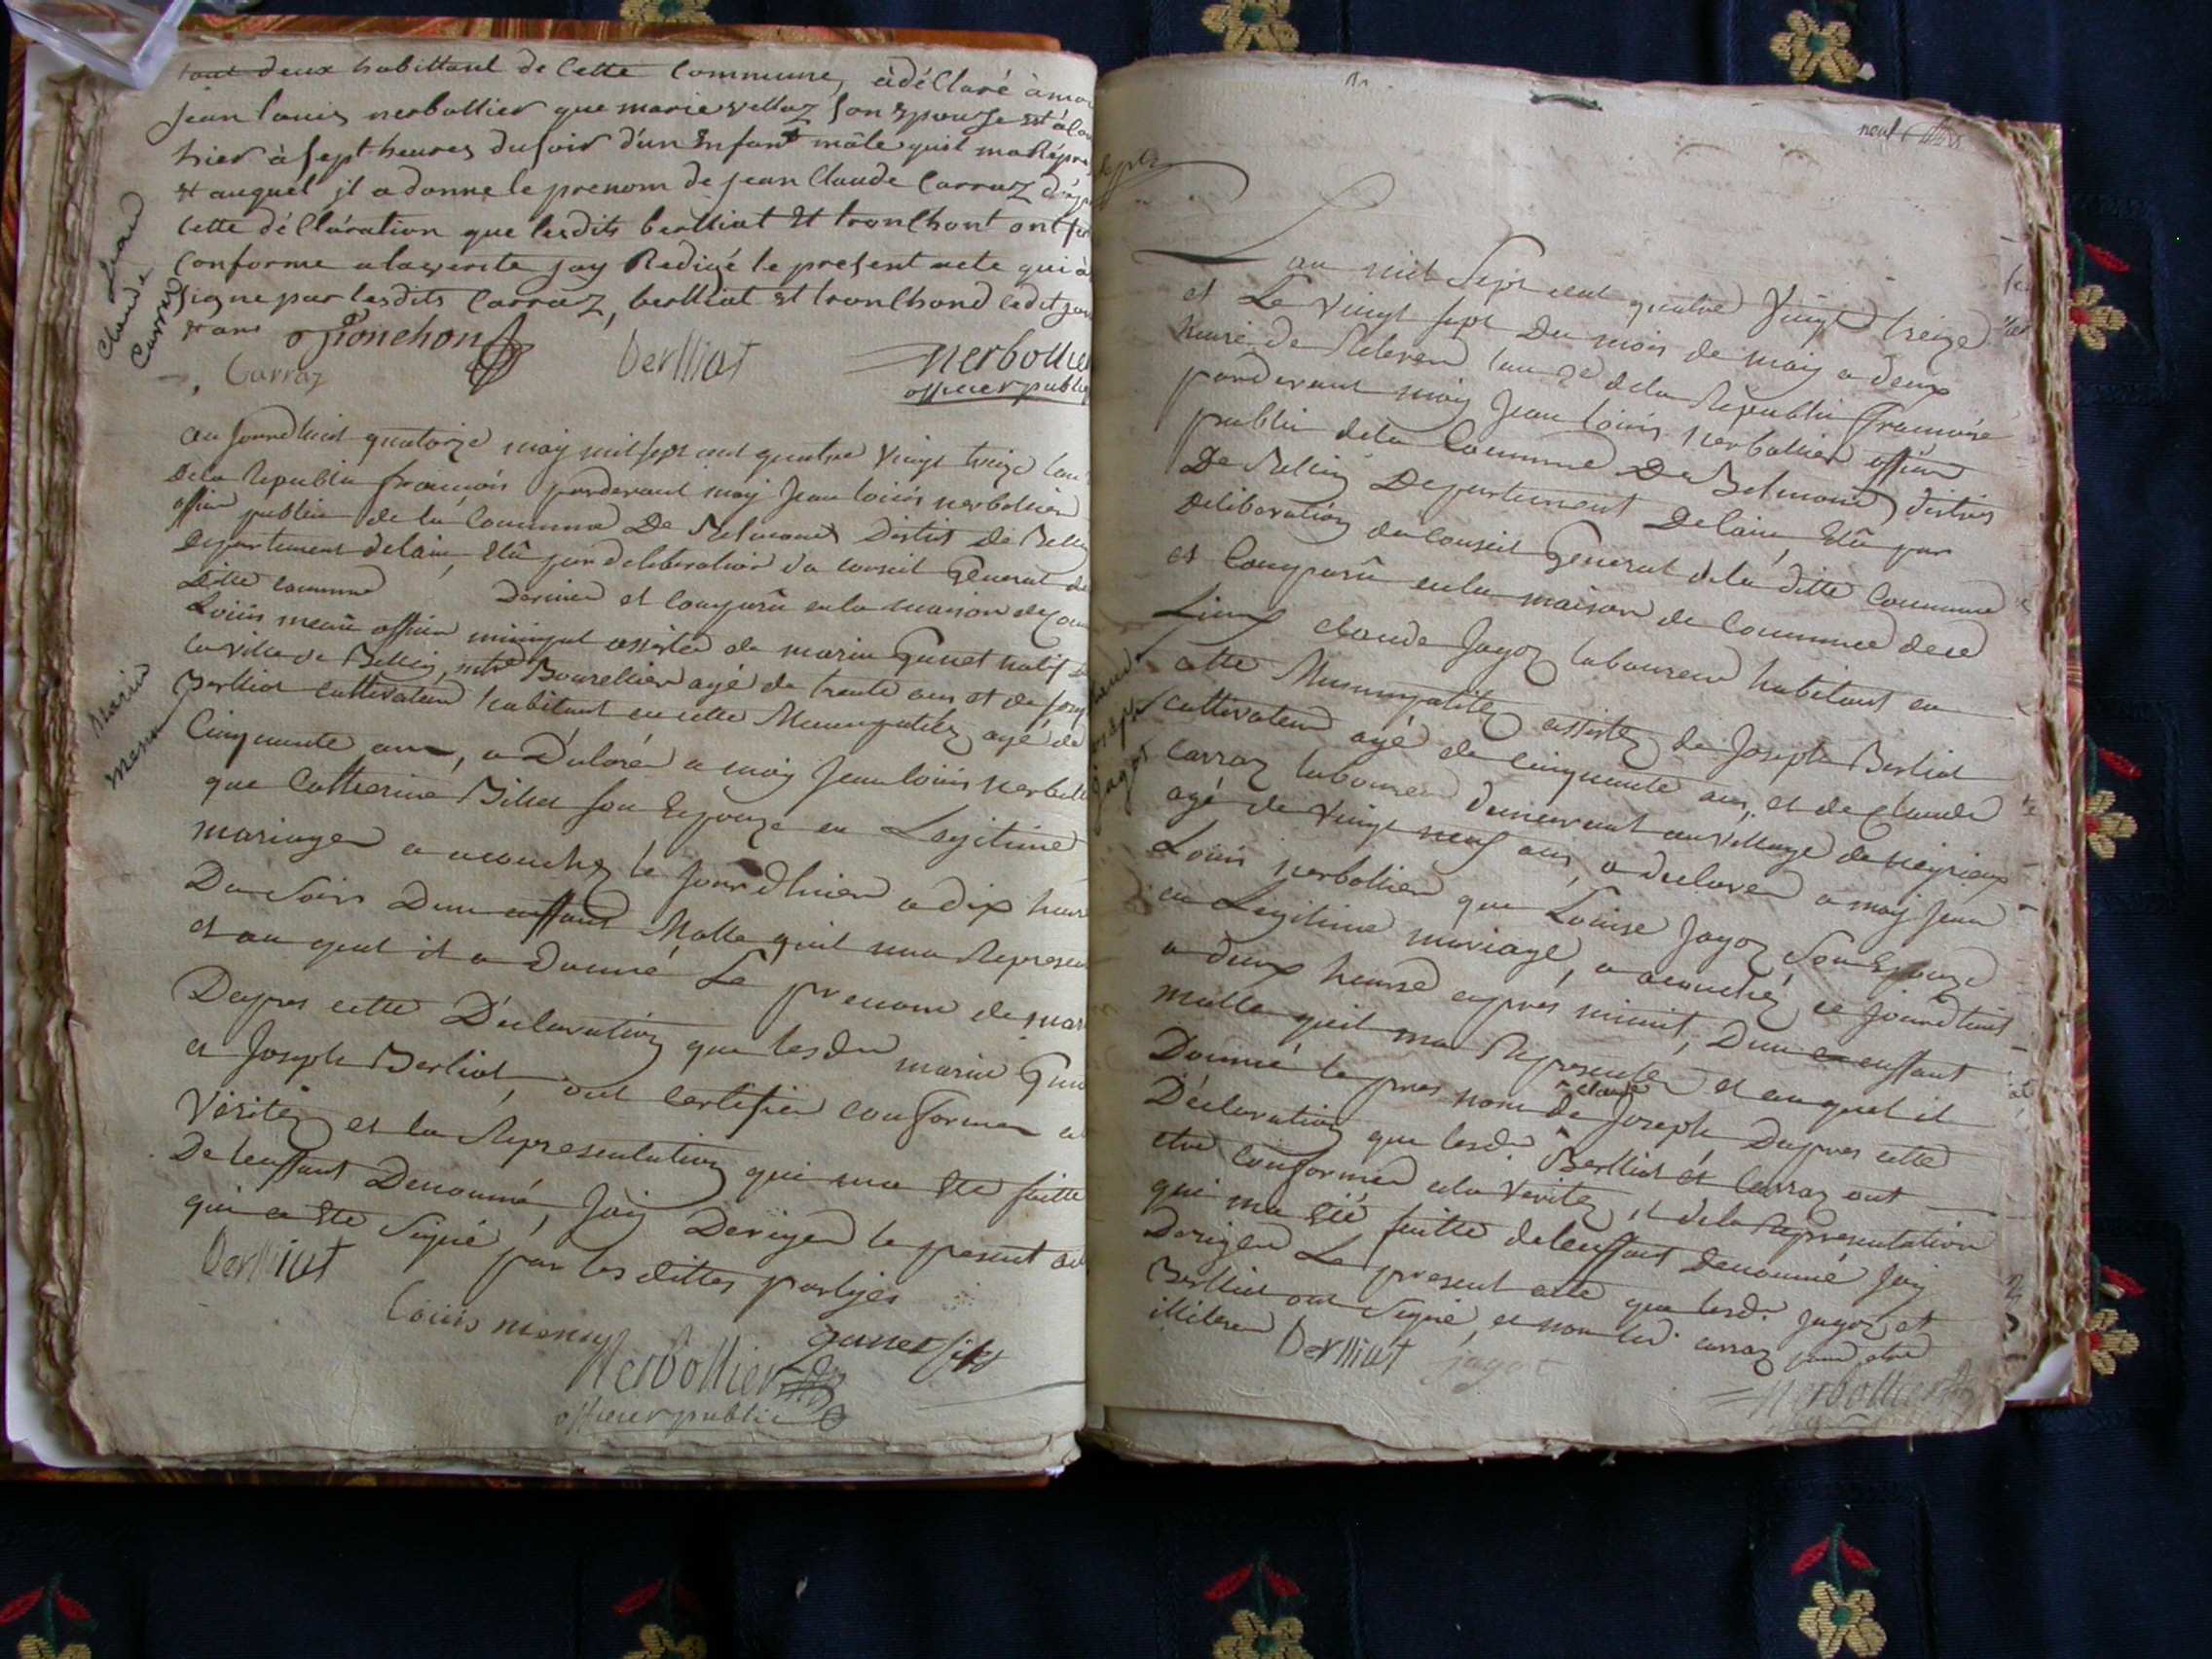 tout deux habittant de Cette Commune, à déClaré à moi
jean louis nerbollier que marie vellaz son Epouse est
hier à sept heures du soir d'un Enfant mâle quil ma Répre
Et auquel jl a donne le prenom de jean Claude Carraz
Cette déClaration que lesdits berlliat Et tronChont ont
Conforme a la verite jay Redigé le present acte qui à
signe par lesdits Carraz, berlliat Et tronChond ledit jour
Et ans
Jean
Claude
Carraz
Tronchon
Carraz
Berlliat
Nerbollier
officier public
au jourdhuit quatorze may mil sept cent quatre vingt treize lan
De la Republic francois pardevant moy Jean loüis nerbollier
officier public de la Commune De Belmond District de Belley
Departement de lain, Elû par deliberation du conseil General de
ditte commune dernier et Comparû en la maison de Com
Loüis menu officier municipal assisté de marin Gunet natif de
la ville de Belley, mtre Bourellier agé de trente ans et de Josep
Berlliat cultivateur habitant en cette Municipalité, agé de
Cinquante ans, a Déclaré a moy Jean loüis Nerboll
que Catherine Billet son Epouze en Legitime
mariage a acouchez le jour d'hier a dix heure
Du soir Dun enffant Malle quil ma Represen
et au quel il a Donné Le prenom de mar
Dapres cette Déclaration que lesdu marin Gun
et Joseph Berliat, ont certifier conforme a
Vérité et la Representation qui ma Ete faitte
De lenffant Denommé, Jay Deriger le present ac
qui a Ete signé par les dittes partyes
Marin
menu
Berlliat
Loüis menu
gunet fils
Nerbollier
officier public
neuf
Lan mil sept cent quatre Vingt treize
et Le vingt sept Du mois de may a deux
heure de Relevee lan 2e de la Republic francoise
pardevant moy Jean loüis nerbollier officier
public de la Commune De Belmond district
De Belley Departement Delain Elû par
Deliberation du Conseil General de la ditte Commune
et Comparû en la maison de Commune de ce
Lieux claude Jagoz laboureur habitant en
cette Municipalité assistez de Joseph Berliat
cultivateur agé de Cinquante ans, et de Claude
Carraz laboureur demeurant au village de neyrieux
agé de Vingt neuf ans, a declarer a moy Jean
Loüis nerbollier que Loüise Jagoz son Epouze
en Legitime mariage, a acouchez ce jourdhuit
a deux heures apres minuit, Dun enffant
malle quil ma Representer et au quel il
Donné le pres nom de claude Joseph, Dapres cette
Déclaration que lesdu Berlliat et Carraz ont
etre conforme a la Verité, et de la Representation
qui ma été faitte de lenffant denommé Jay
Deriger Le present acte que lesdu Jagoz et
Berlliat ont signé, et non led. carraz pour etre
illiteré
Claude
joseph
jagot
Berlliat
jagot
Nerbollier